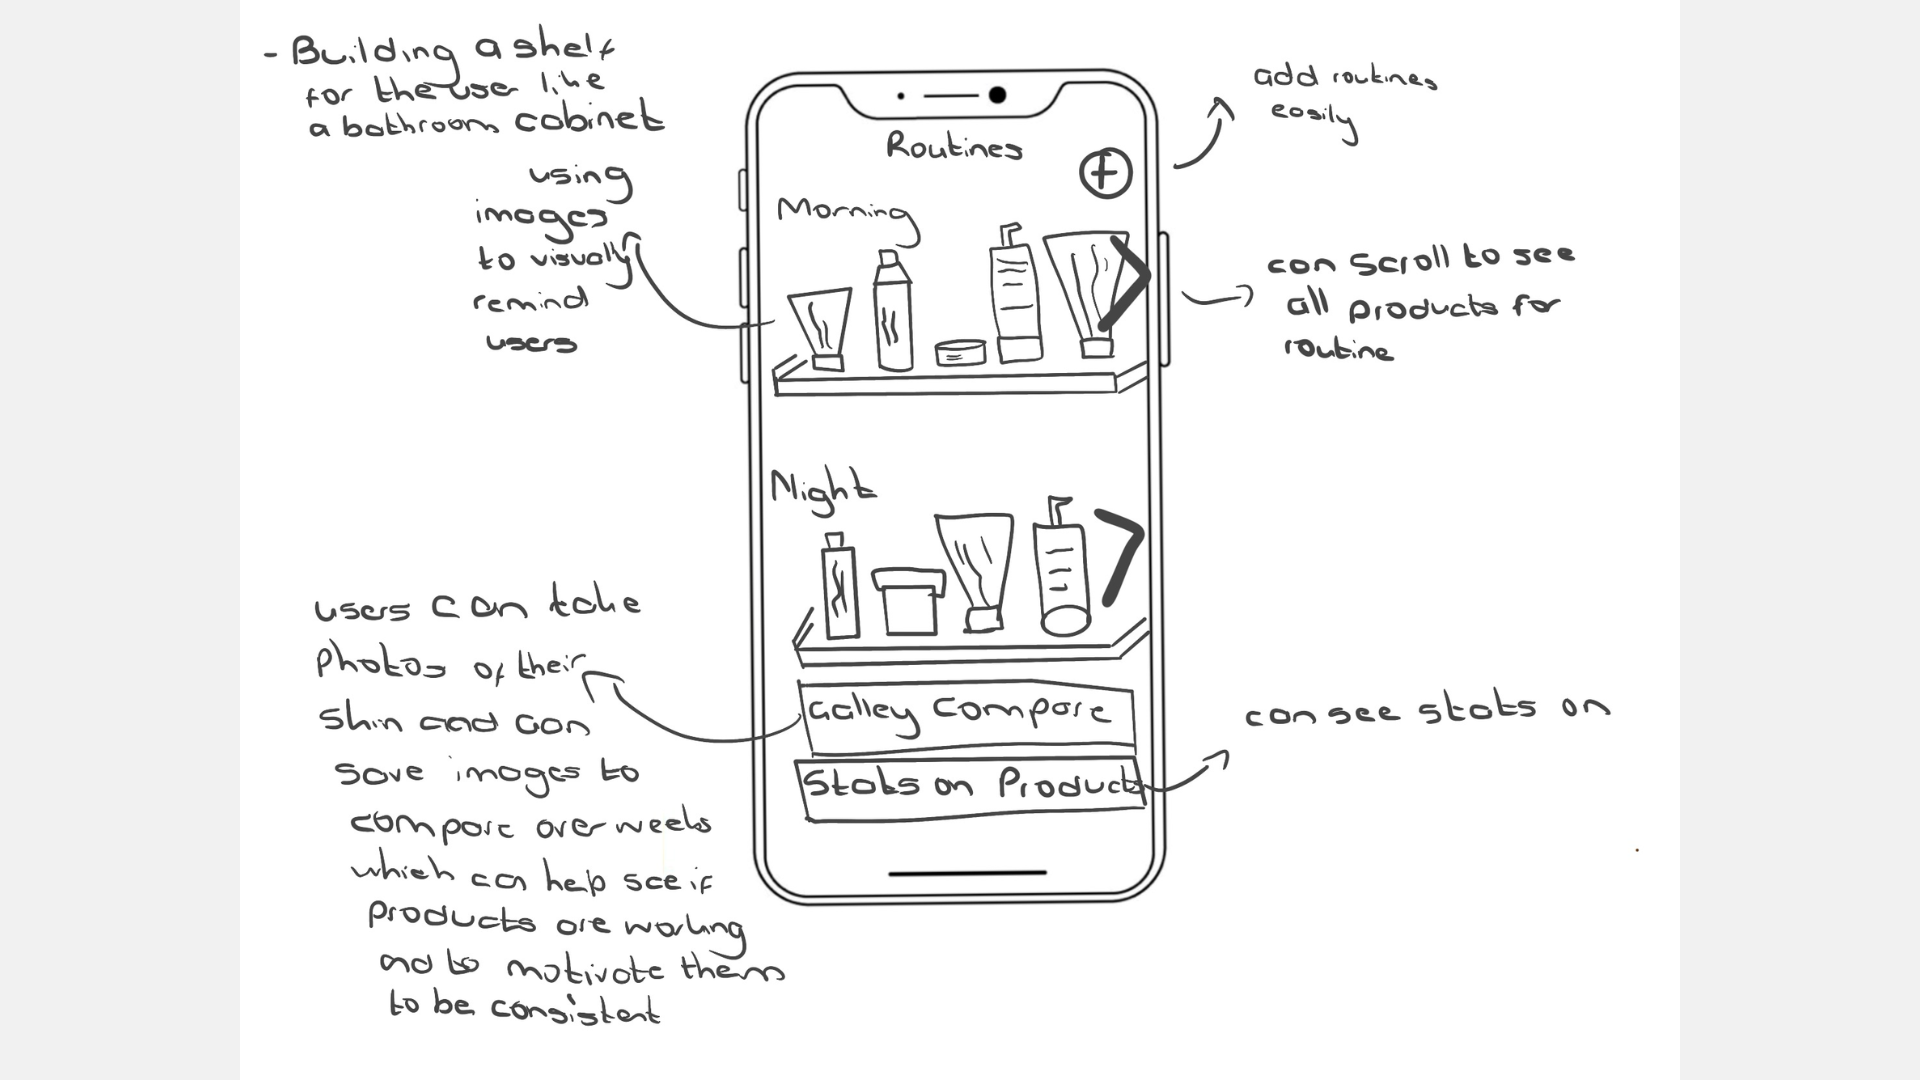 - Building a shelf
for the user like
a bathroom cabinet
using
images
to visually
remind
users
Routines
Morning
Night
Galley Compare
Stats on Products
add routines
easily
can scroll to see
all products for
routine
can see stats on
users can take
photos of their
skin and can
save images to
compare over weeks
which can help see if
products are working
and to motivate them
to be consistent